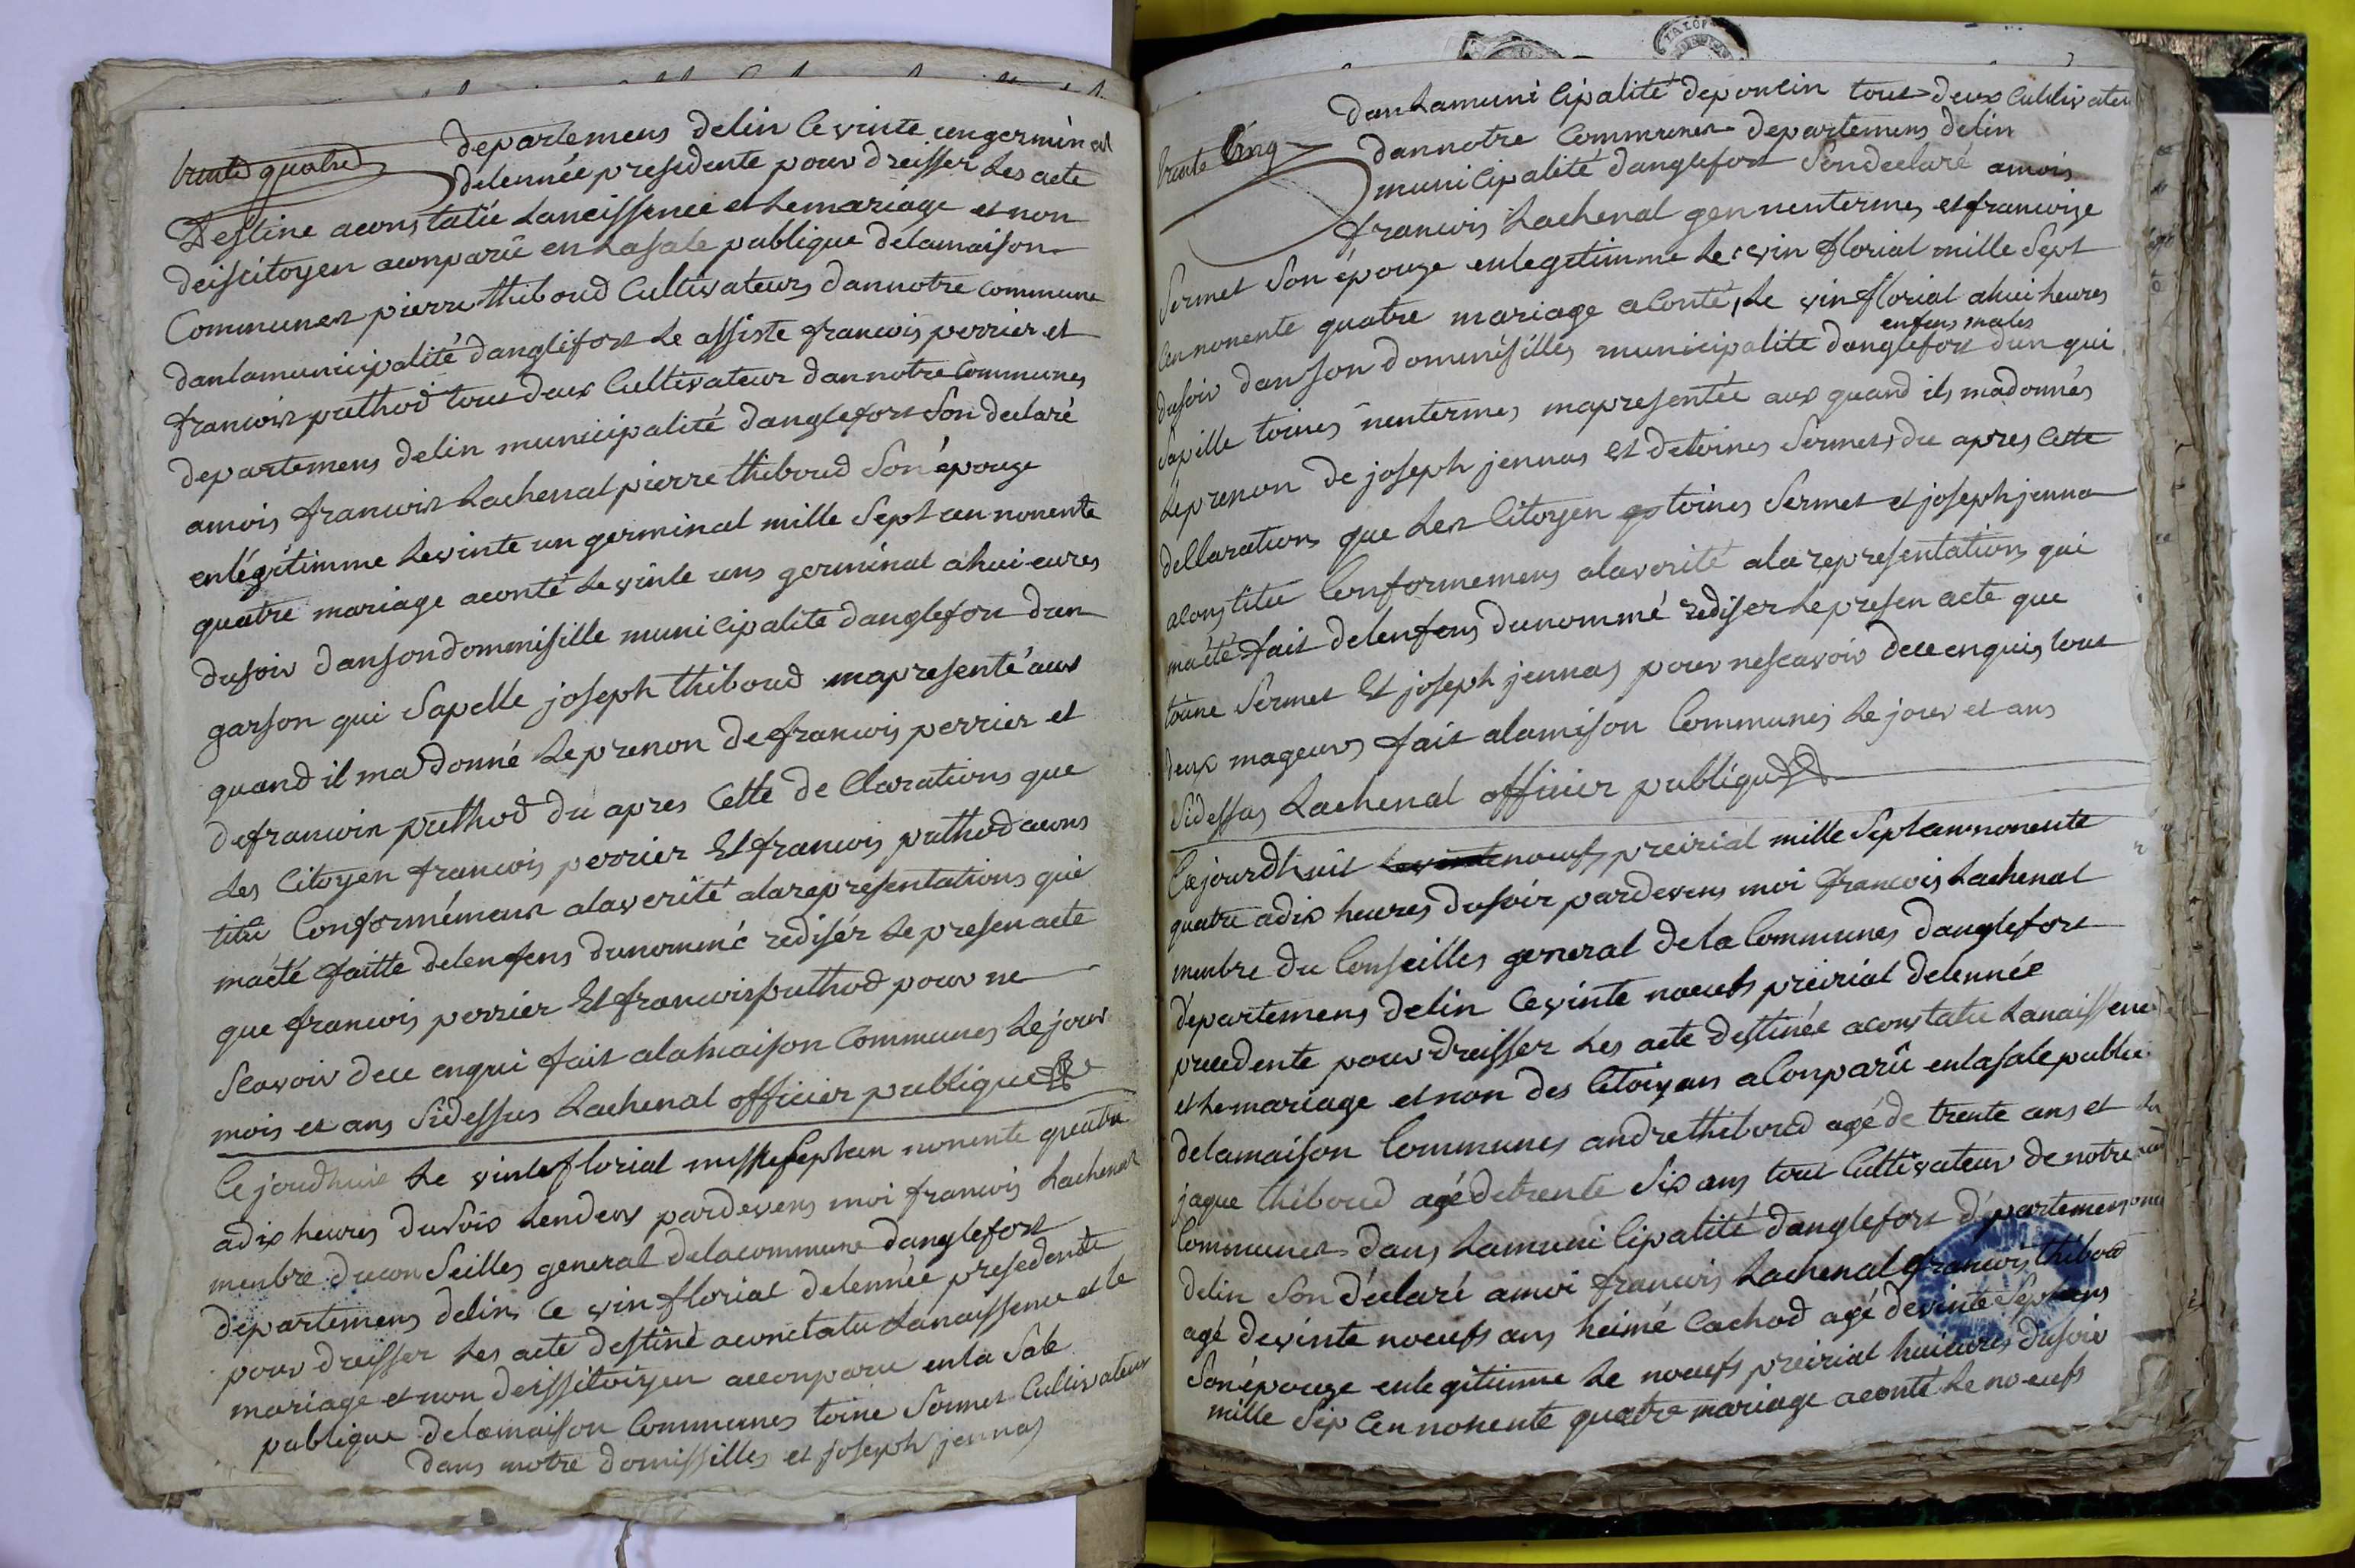 trente quatre
departemens delin le vinte un germinal
delennée presedente pour dreisser les acte
destine aconstatée lancissence et le mariage et non
deiscitoyen aconparû en la sale publique delamaison
Communes pierre thiboud Cultivateurs dannotre commune
danlamunicipalité danglefort le assiste francois perrier et
francois puthod tout deux Cultivateur dannotre Communes
departemens delin municipalité danglefort Son declaré
amois francois Lachenal pierre thiboud Son épouze
enlégitimme le vinte un germinal mille Sept cen nonente
quatre mariage aconté le vinte uns germinal ahui eures
dusoir dansondommisille municipalite danglefort dun
garson qui Sapelle joseph thiboud mapresenté aux
quand il ma donné le prenon de francois perrier et
defrancois puthod du apres Cette de Clarations que
les Citoyen francois perrier Et francois puthod acons
titu Conformémens alaverité ala representations qui
maété faitte delenfens dunommé rediser le presen acte
que francois perrier Et francois puthod pour ne
Scavoir dece enqui fait alamaison Communes le jour
mois et ans Sidessus Lachenal officier publique
Ce joudhuis le vinte florial mille Septcen nonente quatre
adix heures dusoir pardevens moi francois Lachenal
menbre ducon Seilles general delacommune danglefort
departemens delin Ce vin florial delennée presedente
pour dreisser les acte destiné aconctatu Lanaissence et le
mariage et non deissitoiyen aconparu enla Sale
publique delamaison Communes toine Sermet Cultivateur
dans notre domissilles et joseph jennas
trente Cinq
dan Lamuni Cipalité deponcin tout deux Cultivateur
dannotre Communes departemens delin
municipalité danglefort Son declaré amois
francois Lachenal gennentermes et francoize
Sermet Son épouze enlegitimme le vin florial mille Sept
Cennonente quatre mariage aconté le vin florial ahui heures
enfens males
dusoir danson dommésilles municipalite danglefort dun qui
Sapille toines nentermes mapresentée aux quand ils madonnés
le prenon de joseph jennas Et detoines Sermets du apres Cette
deClarations que les Citoyen toines Sermet et joseph jenna
aconstitu Conformemens alaverité ala representations qui
maété fait delenfens dunommé rediser le presen acte que
toine Sermet Et joseph jennas pour nescavoir dece enquis tout
deux mageurs fait alamison Communes le jour et ans
Sidessus Lachenal officier publique
Cejourdhuit noeufs preirial mille Septcennonente
quatre adix heures dusoir pardevens moi francois Lachenal
menbre du Conseilles general de la Communes danglefort
departemens delin Ce vinte noeufs preirial delennée
precedente pour dreisser les acte destinée aconstatu Lanaissence
et le mariage et non des Citoiyens aConparû enlasale publi
delamaison Communes andre thiboud agé de trente ans et
jaque thiboud agé detrente Six ans tout Cultivateur de notre
Communes dans Lamuni Cipalité danglefort départemens
delin Son déclaré amoi francois Lachenal francois thiboud
agé devinte noeufs ans heimé Cachod agé devinte Septans
Sonépouze enlegitimme le noeufs preirial huieures dusoir
mille Sep Cennonente quatre mariage aconté le noeufs